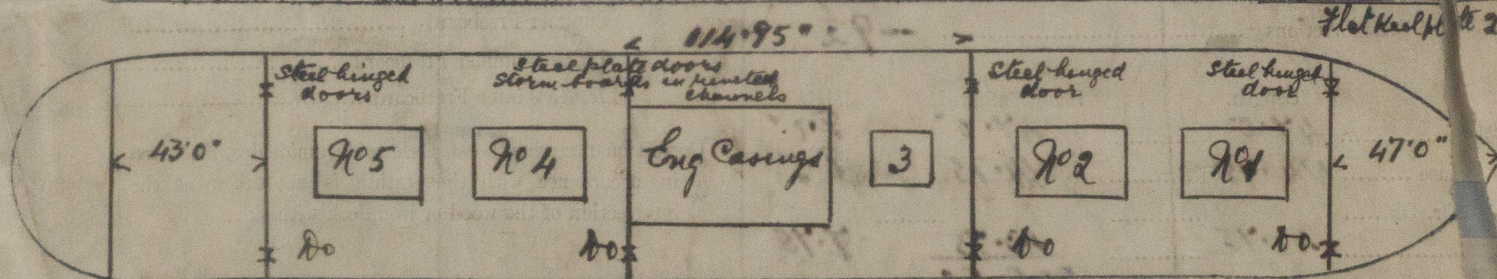 Flat Keelpl
114.95"
Steel hinged
doors
Steel plate doors
storm boards in riveted
channels
Steel hinged
door
Steel hinged
door
43'0"
No 5
No 4
Eng Casings
3
No 2
No 1
47'0"
Do
Do
Do
Do